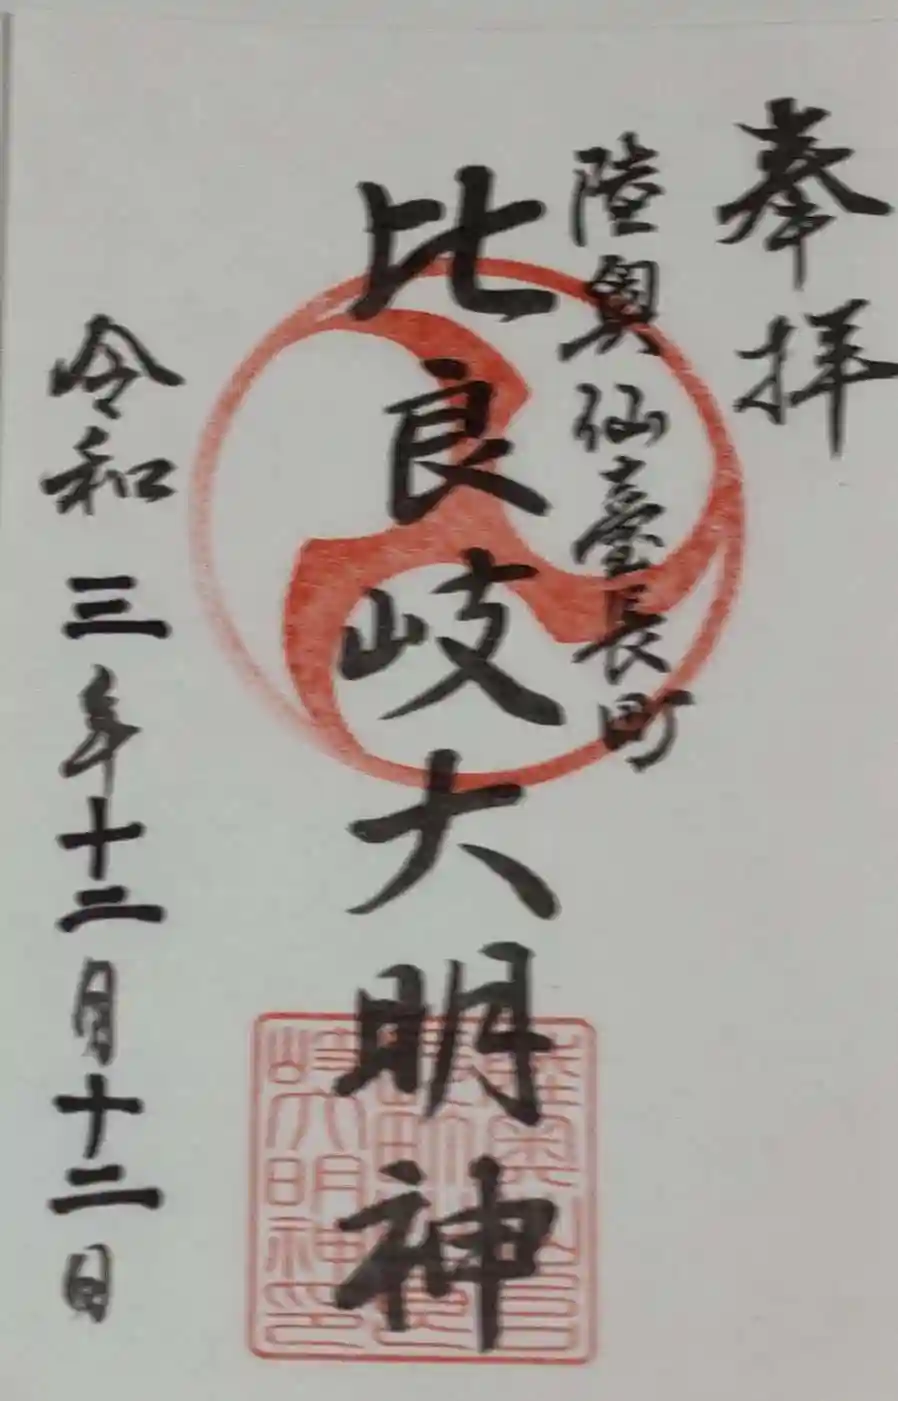 奉拝
陸奥仙臺長町
比良岐大明神
令和三年十二月十二日